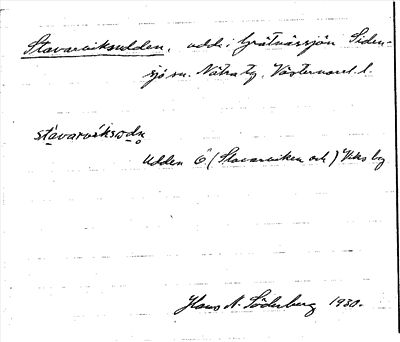 Stavarviksudden, udde i Gråtnässjön Siden-
sjö sn. Nätra tg. Västernorrl. l.
stavarviksodn
Udden Ö (Stavarviken och) Viks by
Hans N. Söderberg 1930.